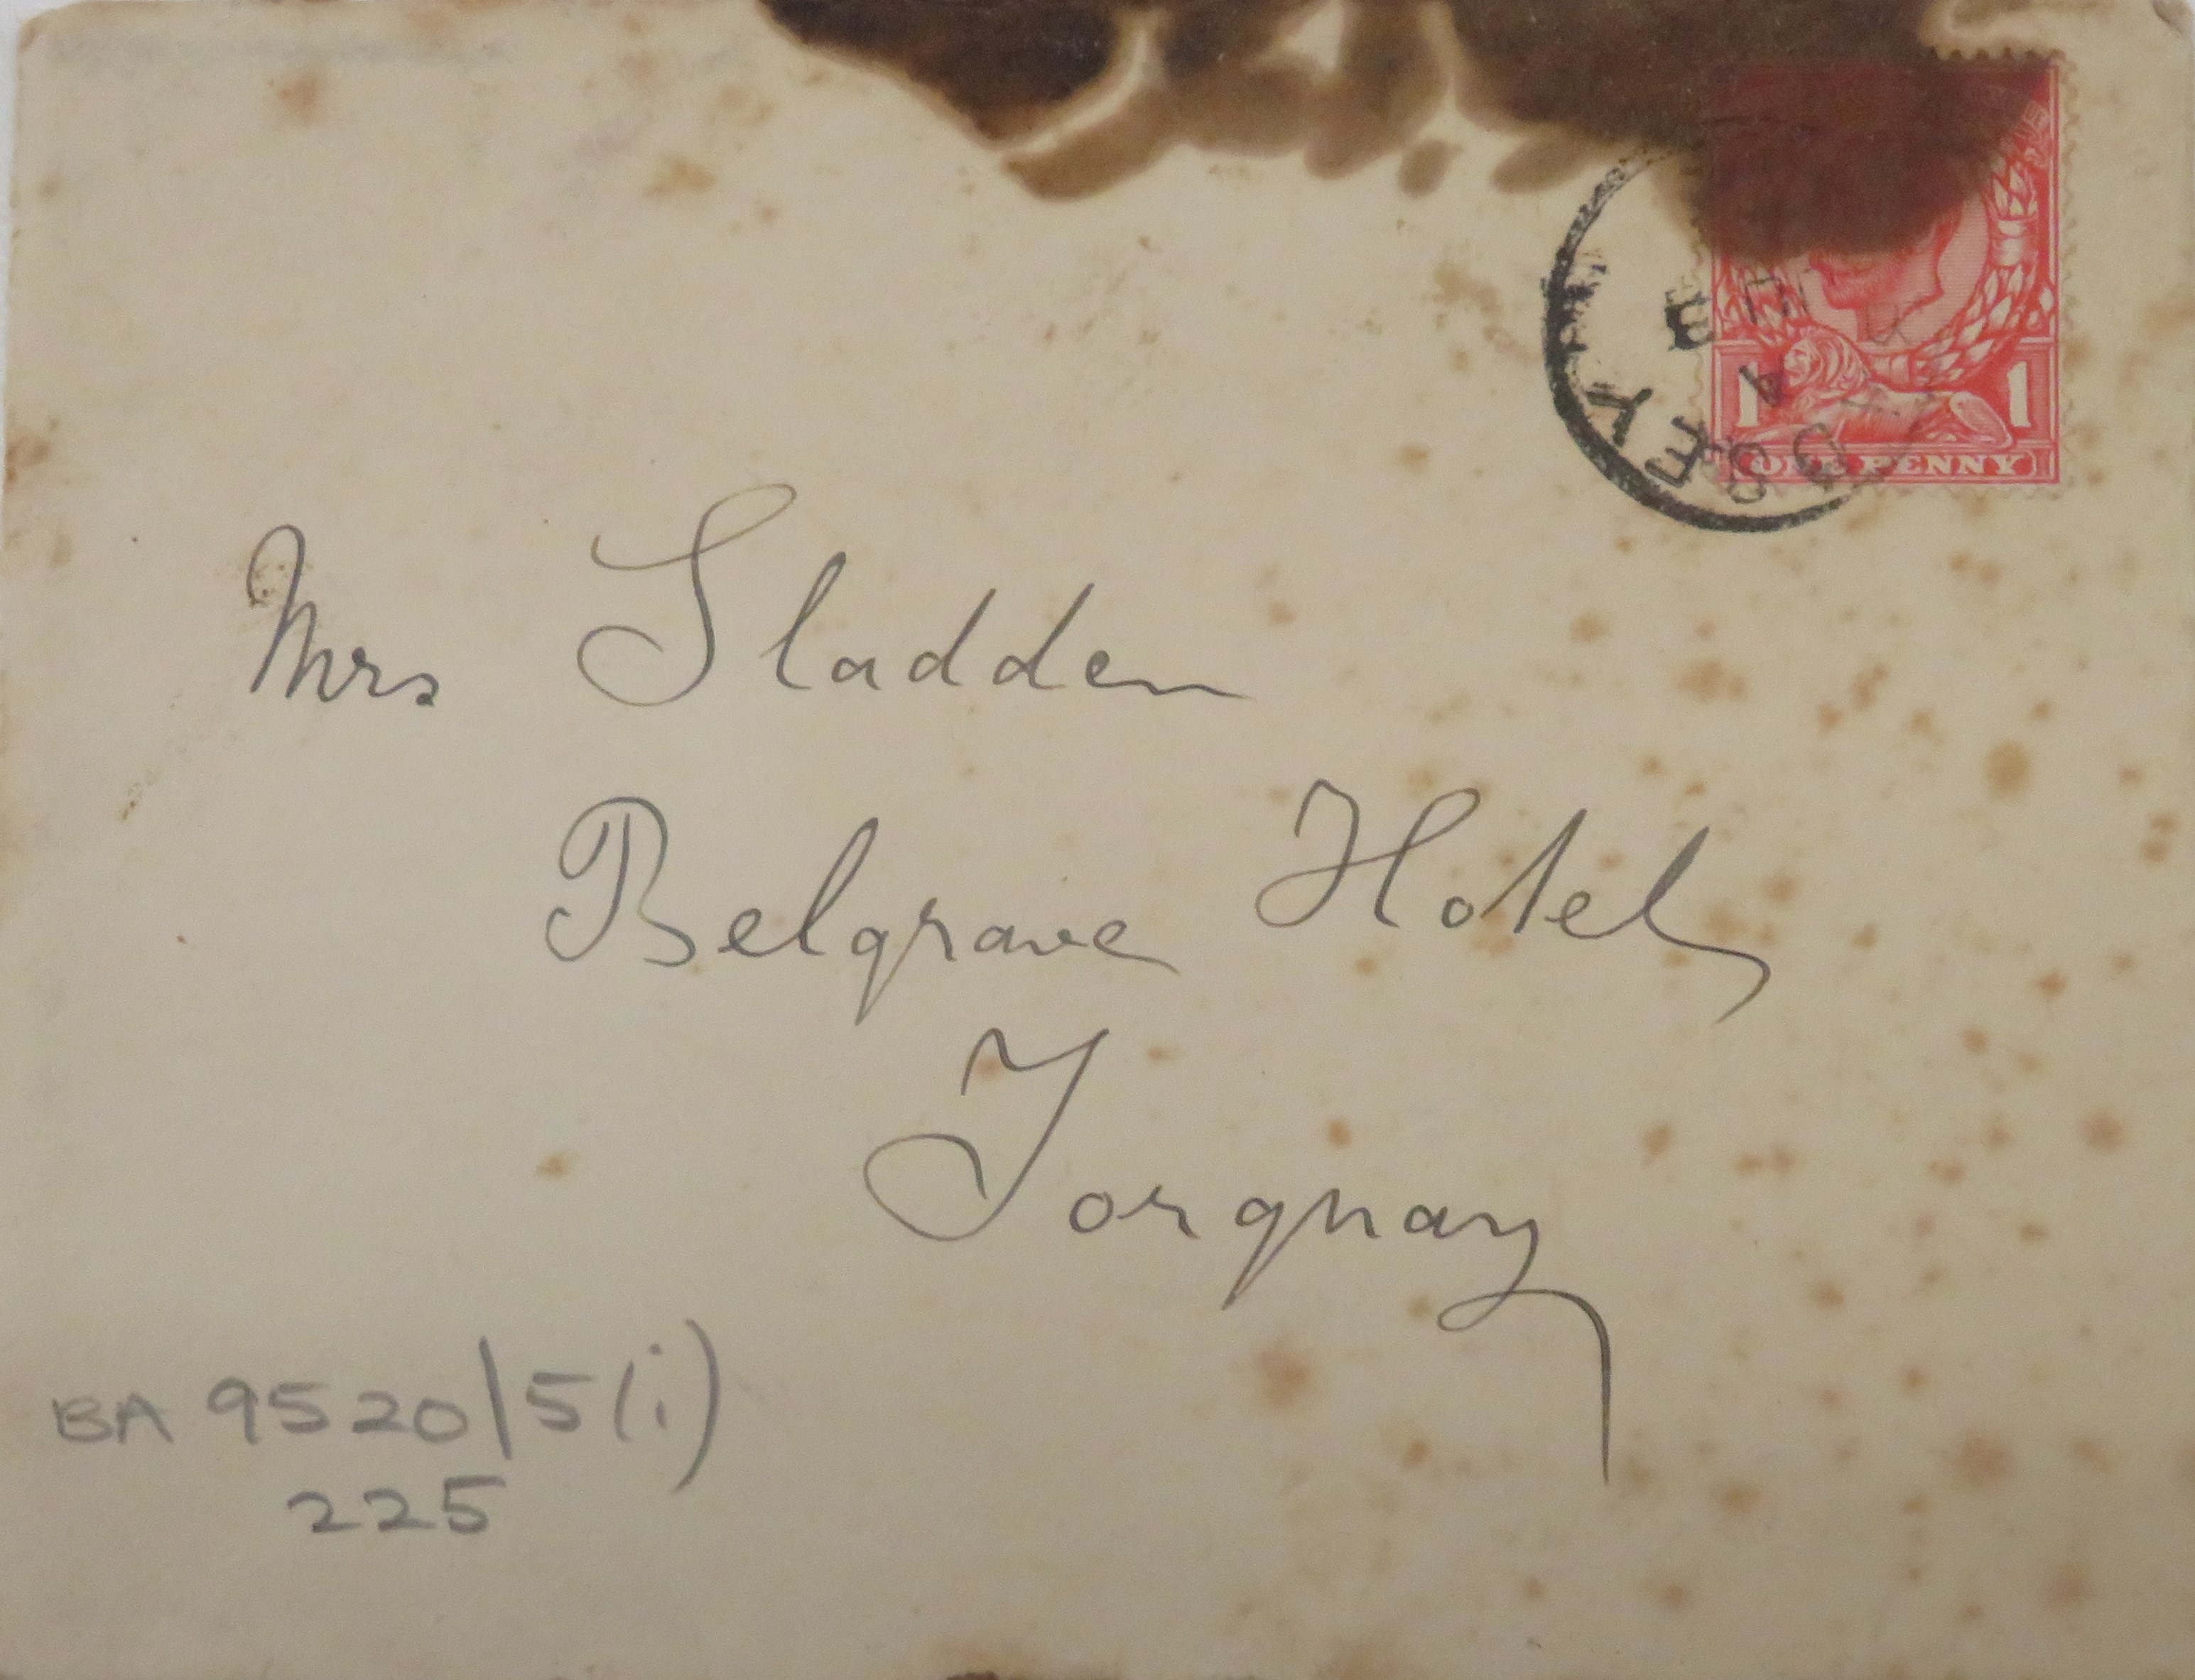 1 1
ONE PENNY
Mrs Sladden
Belgrave Hotel
Torquay
BA 9520/5(i)
225